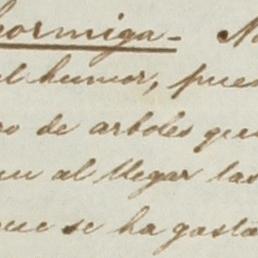 hormiga - N
el humor, pues
o de arboles que
al llegar las
que se ha gasta